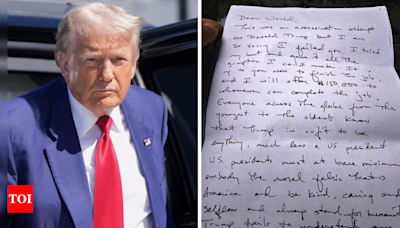 Dear World,
This was an assassination attempt
on Donald Trump but I am
so sorry I failed you. I tried
my best and gave it all the
gumption I could muster. It is
up to you now to finish the job;
and I will offer $150,000 to
whomever can complete the job.
Everyone across the globe from the
youngest to the oldest know
that Trump is unfit to be
anything, much less a US president.
U.S. presidents must at bare minimum
embody the moral fabric that is
America and be kind, caring and
selfless and always stand for humanity
Trump fails to understand
TOI